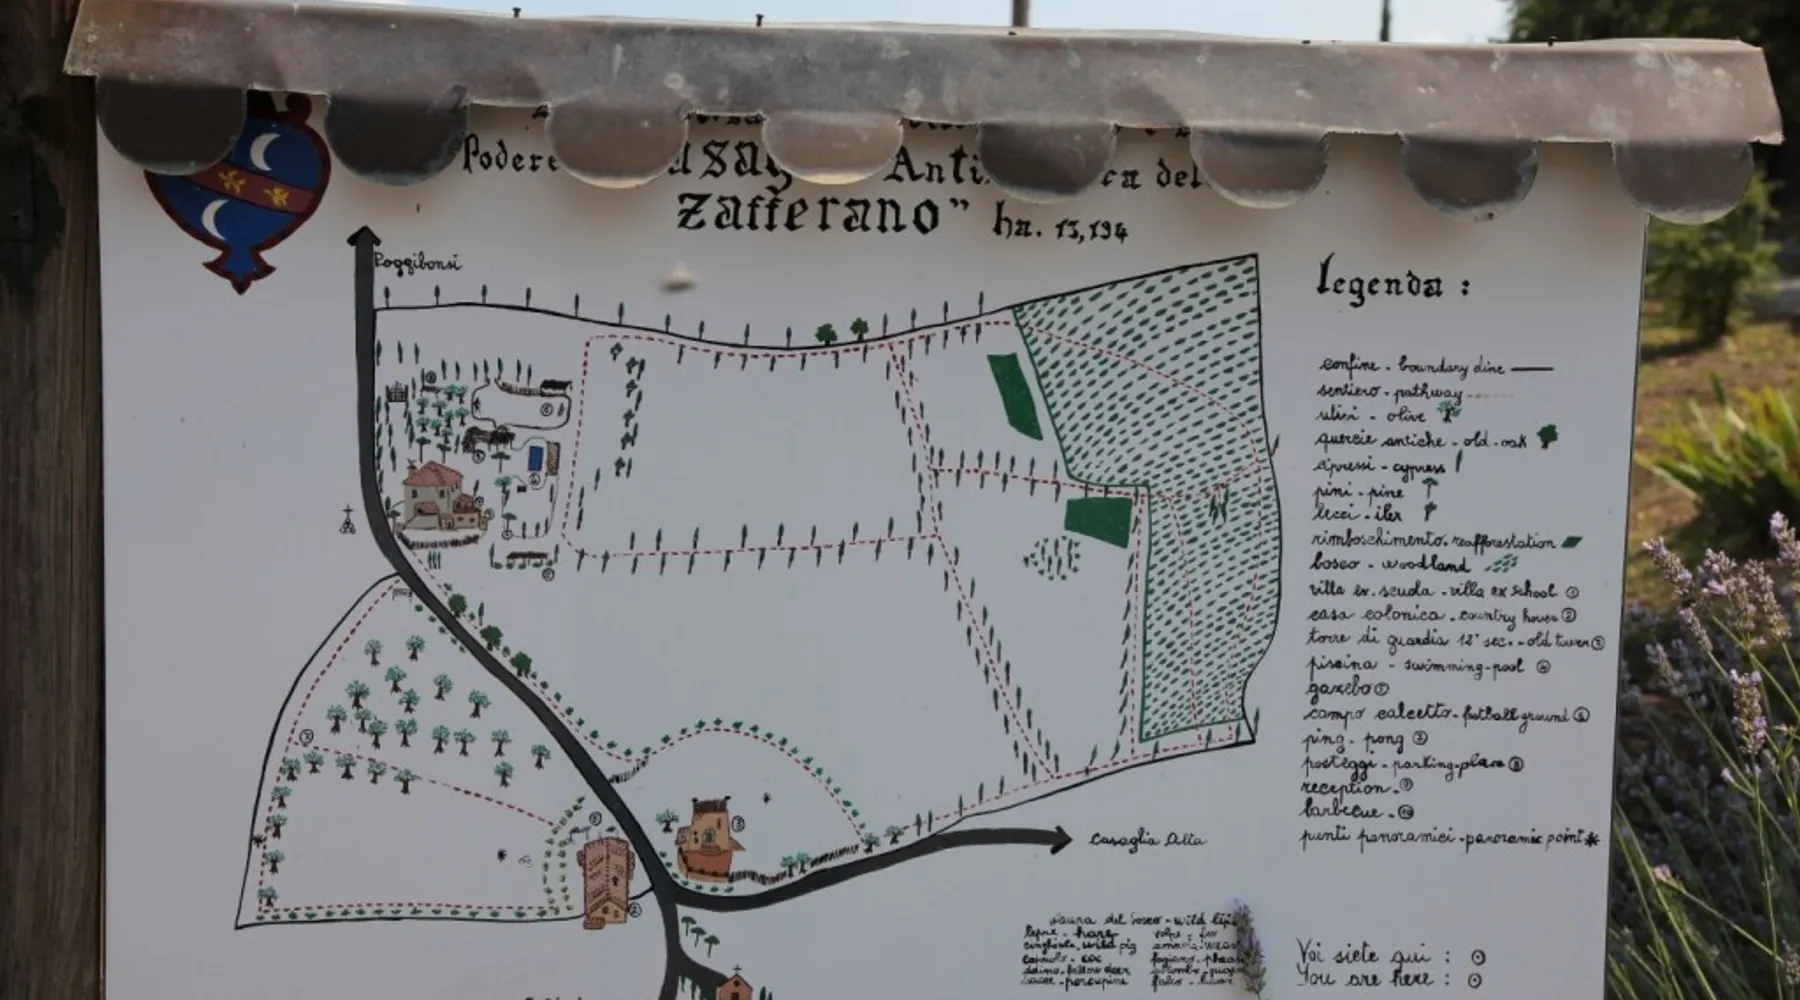 Podere
Zafferano" ha. 13,194
Poggibonsi
legenda :
confine - boundary line
sentiero - pathway
ulivi - olive
quercie antiche - old-oak
cipressi - cypress
pini - pine
lecci - ilex
rimboschimento - reafforestation
bosco - woodland
villa ex. scuola - villa ex school 1
casa colonica - country house 2
torre di guardia 12° sec. - old tower 3
piscina - swimming-pool 4
gazebo 5
campo calcetto - football ground 6
ping-pong 7
posteggi - parking-place 8
reception - 9
barbecue - 10
punti panoramici - panoramic point *
Casaglia Alta
fauna del bosco - wild life
lepre - hare
volpe - fox
cinghiale - wild pig
capriolo - roe
daino - fallow deer
istrice - porcupine
Voi siete qui :
You are here :